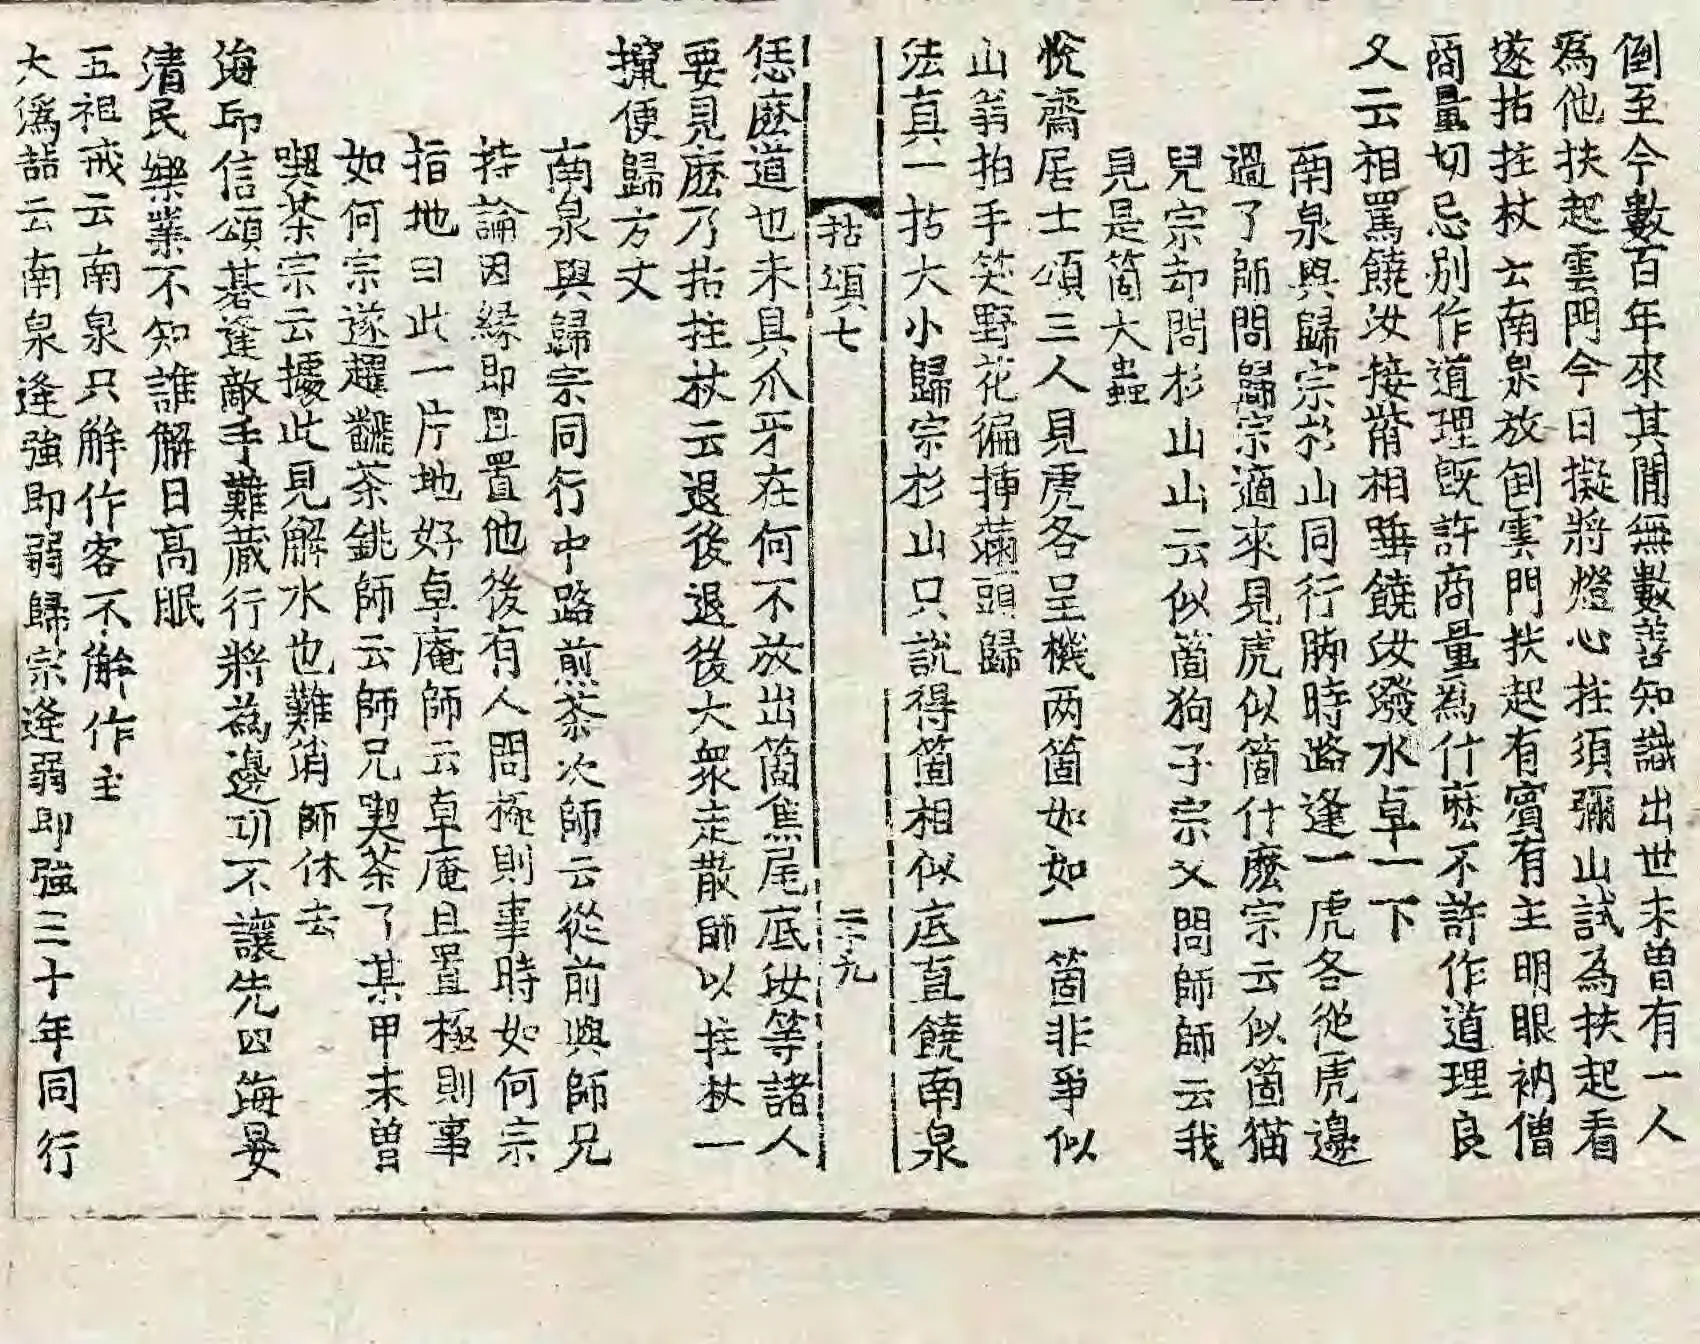 倒至今數百年來其間無數善知識出世未曾有一人
爲他扶起雲門今日擬將燈心拄須彌山試爲扶起看
遂拈拄杖云南泉放倒雲門扶起有賓有主明眼衲僧
商量切忌別作道理旣許商量爲什麽不許作道理良
久云相罵饒汝接觜相唾饒汝潑水卓一下
南泉與歸宗杉山同行脚時路逢一虎各從虎邊
過了師問歸宗適來見虎似箇什麽宗云似箇猫
兒宗却問杉山山云似箇狗子宗又問師師云我
見是箇大蟲
悅齋居士頌三人見虎各呈機两箇如如一箇非爭似
山翁拍手笑野花徧揷滿頭歸
法真一拈大小歸宗杉山只說得箇相似底直饒南泉
拈頌七
二十九
恁麽道也未具爪牙在何不放出箇焦尾底汝等諸人
要見麽乃拈拄杖云退後退後大衆走散師以拄杖一
攛便歸方丈
南泉與歸宗同行中路煎茶次師云從前與師兄
持論因緣即且置他後有人問極則事時如何宗
指地曰此一片地好卓庵師云卓庵且置極則事
如何宗遂趯飜茶銚師云師兄喫茶了某甲未曾
喫茶宗云據此見解水也難消師休去
海印信頌碁逢敵手難藏行將爲邊功不讓先四海晏
淸民樂業不知誰解日高眠
五祖戒云南泉只解作客不解作主
大潙喆云南泉逢強即弱歸宗逢弱即強三十年同行